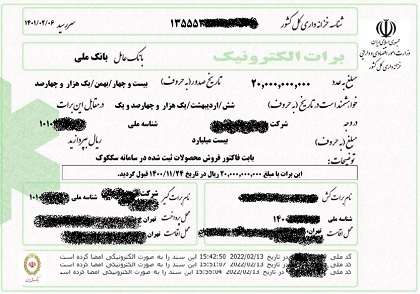 شناسه خزانه داری کل کشور
۱۳۵۵۵۲
سررسید: ۱۴۰۱/۰۲/۰۶
جمهوری اسلامی ایران
وزارت امور اقتصادی و دارایی
خزانه داری کل کشور
برات الکترونیک
بانک عامل: بانک ملی
مبلغ به عدد ۲۰,۰۰۰,۰۰۰,۰۰۰ تاریخ صدور (به حروف) بیست و چهار/بهمن/یک هزار و چهارصد
خواهشمند است در تاریخ (به حروف) شش/اردیبهشت/یک هزار و چهارصد و یک در مقابل این برات
در وجه شرکت شناسه ملی ۱۰۱۰
مبلغ (به حروف) بیست میلیارد ریال بپردازید.
توضیحات: بابت فاکتور فروش محصولات ثبت شده در سامانه سککوک
این برات با مبلغ ۲۰,۰۰۰,۰۰۰,۰۰۰ ریال در تاریخ ۱۴۰۰/۱۱/۲۴ قبول گردید.
نام برات کش
شناسه ملی ۱۴۰۰
محل اقامت تهران
نام برات گیر شرکت
شناسه ملی ۱۰۱۰
محل پرداخت تهران
محل اقامت تهران
کد ملی در تاریخ 2022/02/13 15:42:50 این سند را به صورت الکترونیکی امضا کرده است
کد ملی در تاریخ 2022/02/13 15:51:07 این سند را به صورت الکترونیکی امضا کرده است
کد ملی در تاریخ 2022/02/13 15:55:04 این سند را به صورت الکترونیکی امضا کرده است